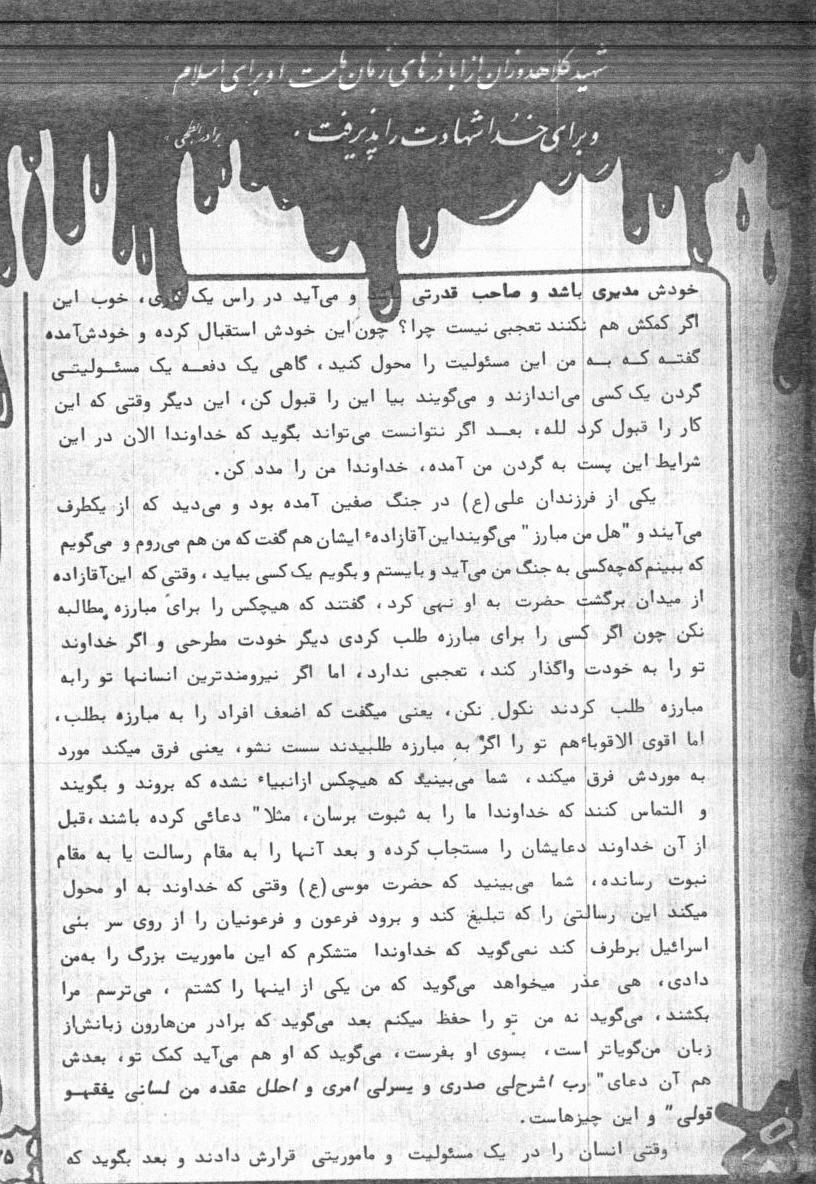 شهید کلاهدوزان از اباذرهای زمان ماست او برای اسلام
و برای خدا شهادت را پذیرفت.
خودش مدیری باشد و صاحب قدرتی باشد و می‌آید در راس یک کاری، خوب این
اگر کمکش هم نکنند تعجبی نیست چرا؟ چون این خودش استقبال کرده و خودش آمده
گفته که به من این مسئولیت را محول کنید، گاهی یک دفعه یک مسئولیتی
گردن یک کسی می‌اندازند و می‌گویند بیا این را قبول کن، این دیگر وقتی که این
کار را قبول کرد لله، بعد اگر نتوانست می‌تواند بگوید که خداوندا الان در این
شرایط این پست به گردن من آمده، خداوندا من را مدد کن.
یکی از فرزندان علی (ع) در جنگ صفین آمده بود و می‌دید که از یکطرف
می‌آیند و "هل من مبارز" می‌گویند این آقازادهٔ ایشان هم گفت که من هم می‌روم و می‌گویم
که ببینم که چه کسی به جنگ من می‌آید و بایستم و بگویم یک کسی بیاید، وقتی که این آقازاده
از میدان برگشت حضرت به او نهی کرد، گفتند که هیچکس را برای مبارزه مطالبه
نکن چون اگر کسی را برای مبارزه طلب کردی دیگر خودت مطرحی و اگر خداوند
تو را به خودت واگذار کند، تعجبی ندارد، اما اگر نیرومندترین انسانها تو را به
مبارزه طلب کردند نکول نکن، یعنی میگفت که اضعف افراد را به مبارزه بطلب،
اما اقوی الاقویاء هم تو را اگر به مبارزه طلبیدند سست نشو، یعنی فرق میکند مورد
به موردش فرق میکند، شما می‌بینید که هیچکس از انبیاء نشده که بروند و بگویند
و التماس کنند که خداوندا ما را به ثبوت برسان، مثلا" دعائی کرده باشند، قبل
از آن خداوند دعایشان را مستجاب کرده و بعد آنها را به مقام رسالت یا به مقام
نبوت رسانده، شما می‌بینید که حضرت موسی (ع) وقتی که خداوند به او محول
میکند این رسالتی را که تبلیغ کند و برود فرعون و فرعونیان را از روی سر بنی
اسرائیل برطرف کند نمی‌گوید که خداوندا متشکرم که این ماموریت بزرگ را به من
دادی، هی عذر میخواهد می‌گوید که من یکی از اینها را کشتم، می‌ترسم مرا
بکشند، می‌گوید نه من تو را حفظ میکنم بعد می‌گوید که برادر من هارون زبانش از
زبان من گویاتر است، بسوی او بفرست، می‌گوید که او هم می‌آید کمک تو، بعدش
هم آن دعای "رب اشرح‌لی صدری و یسرلی امری و احلل عقده من لسانی یفقهو
قولی" و این چیزهاست.
وقتی انسان را در یک مسئولیت و ماموریتی قرارش دادند و بعد بگوید که